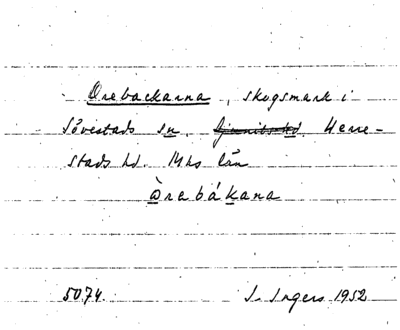 Orebackarna, skogsmark i
Sövestads sn. Herre-
stads hd. Mhs län
Òrebákana
5074. I. Ingers 1952